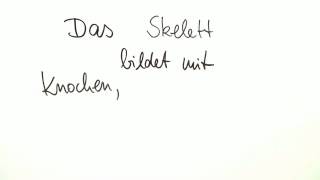 Das Skelett
bildet mit
Knochen,